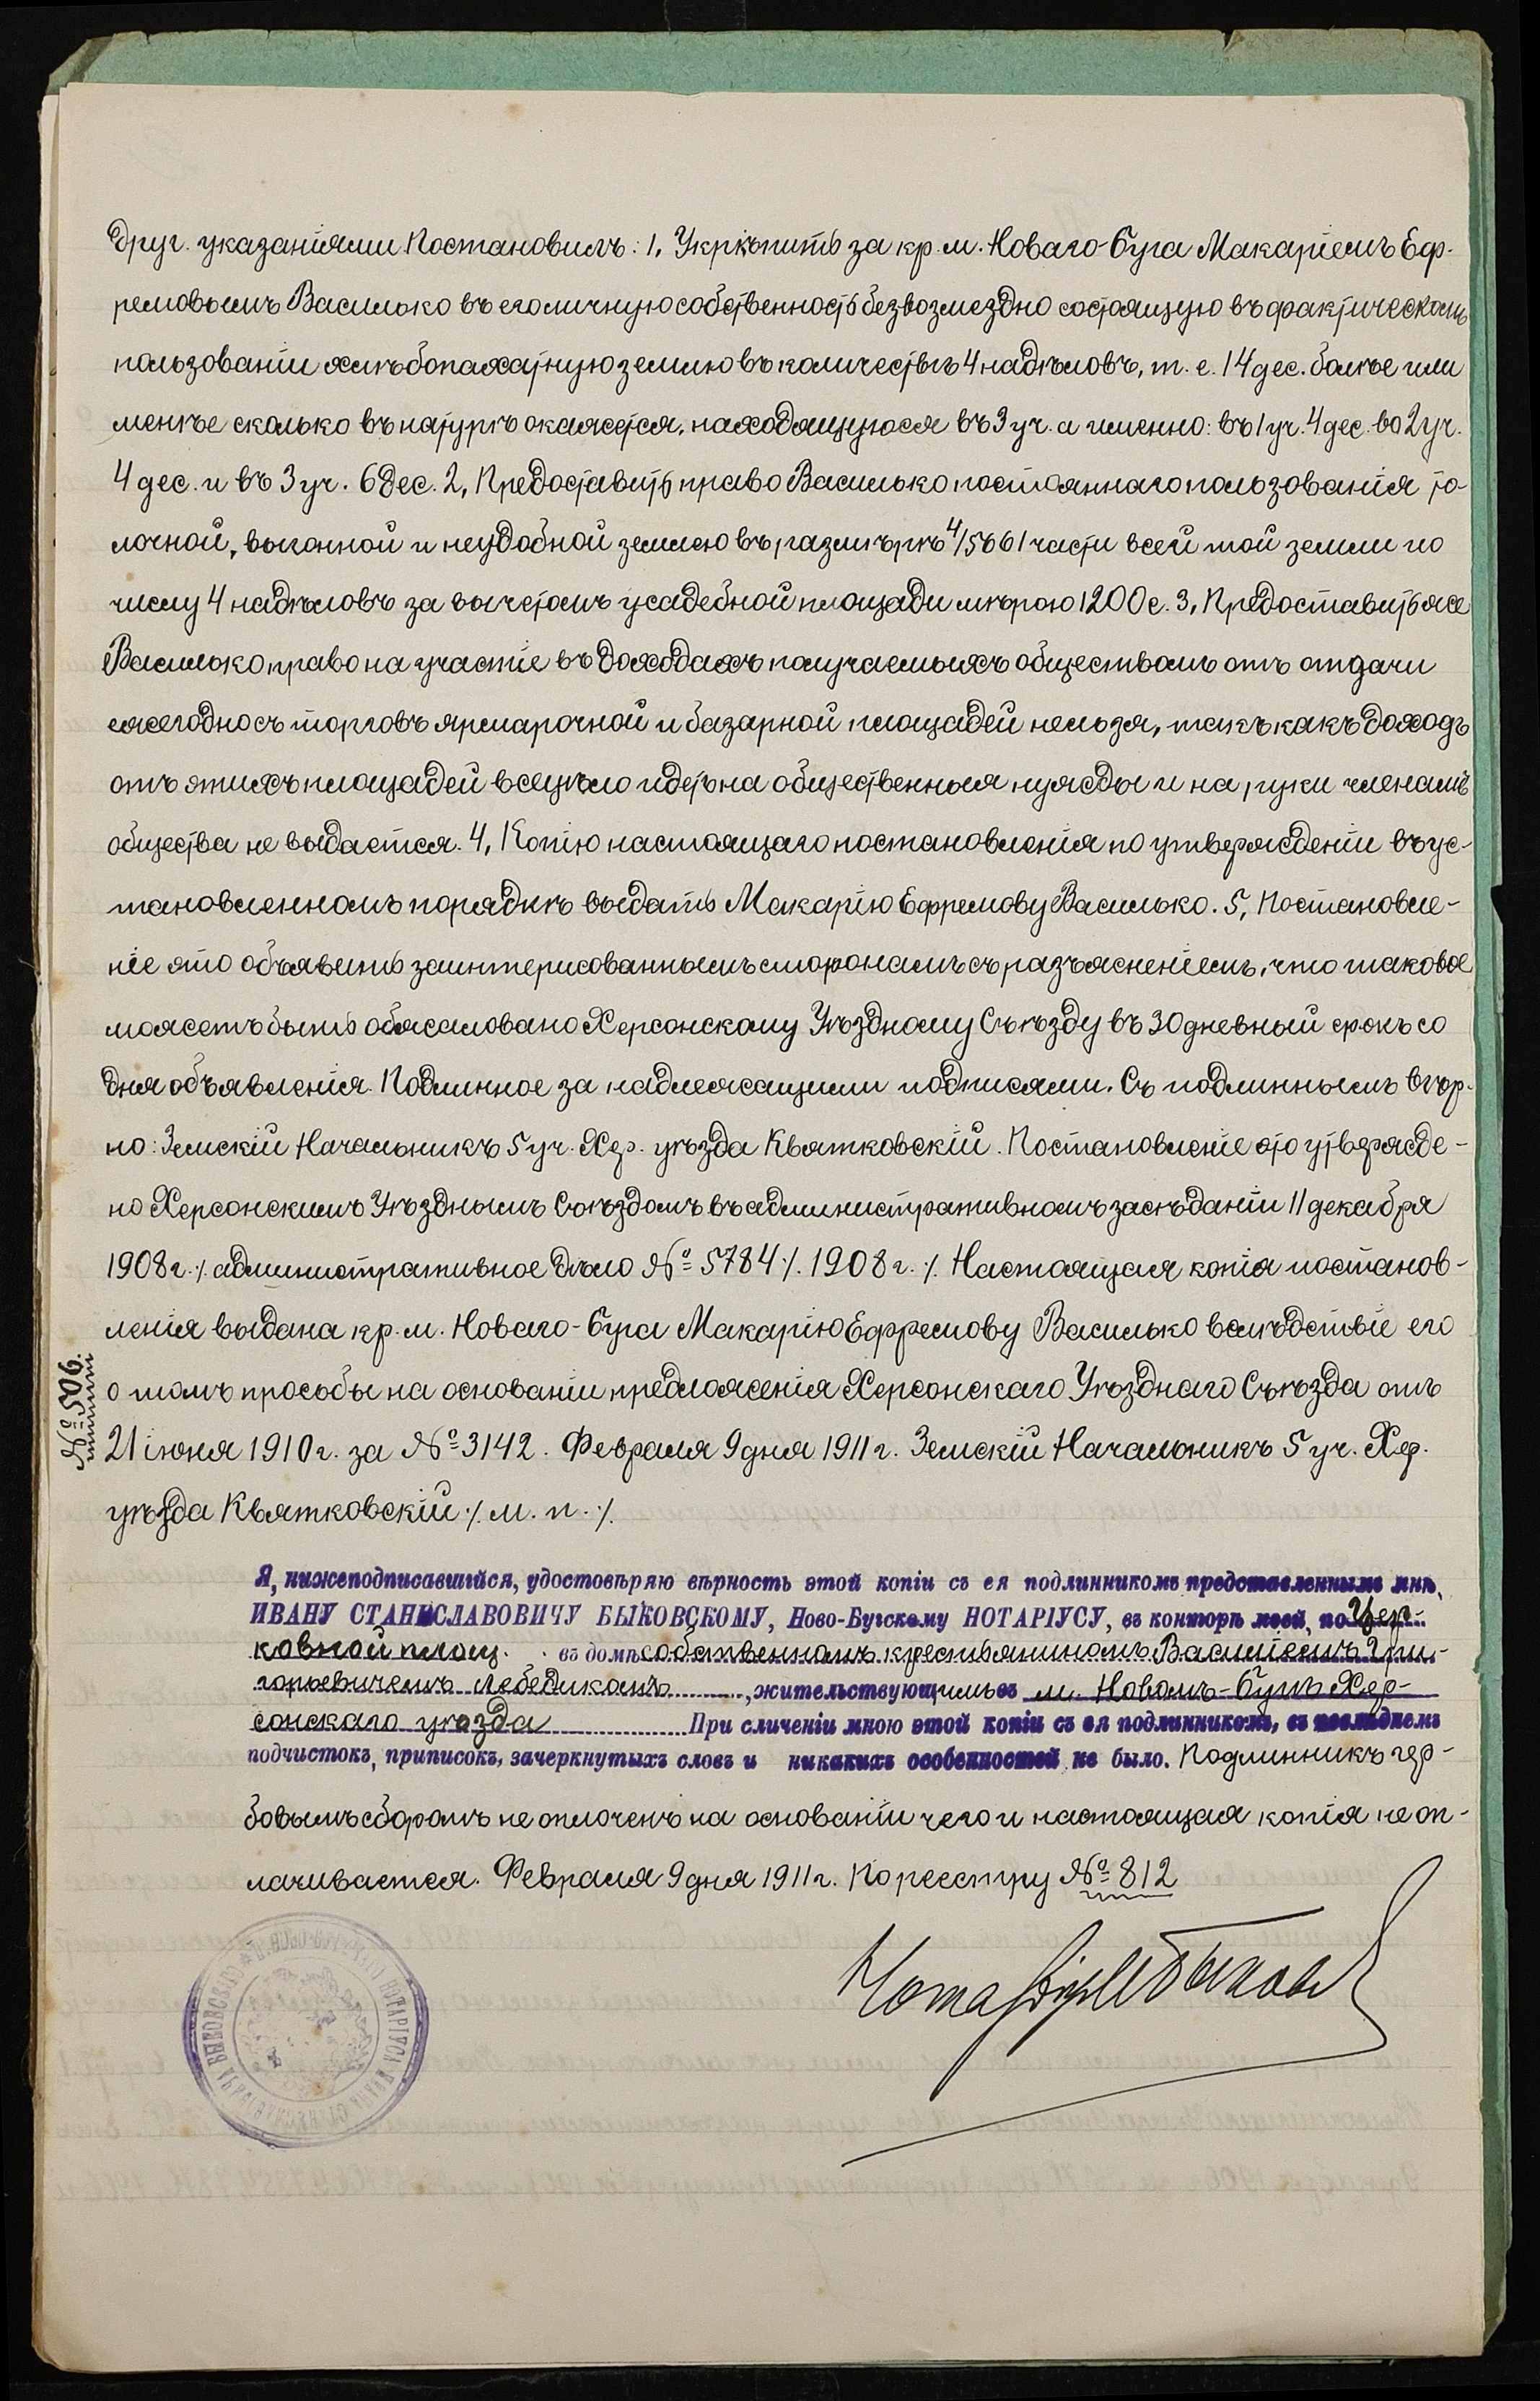 друг. указаніями Постановилъ: 1, Укрѣпить за кр. м. Новаго-Буга Макаріемъ Еф-
ремовымъ Василько въ его личную собственность безвозмездно состоящую въ фактическомъ
пользованіи хлѣбопахатную землю въ количествѣ 4 надѣловъ, т. е. 14 дес. болѣе или
менѣе сколько въ натурѣ окажется, находящуюся въ 3 уч. а именно: въ 1 уч. 4 дес. во 2 уч.
4 дес. и въ 3 уч. 6 дес. 2, Предоставить право Василько постояннаго пользованія то-
лочной, выгонной и неудобной землею въ размѣрѣ 4/5661 части всей той земли по
числу 4 надѣловъ за вычетомъ усадебной площади мѣрою 1200 с. 3, Предоставить же
Василько право на участіе въ доходахъ получаемыхъ обществомъ отъ отдачи
ежегодно съ торговъ ярмарочной и базарной площадей нельзя, такъ какъ доходъ
отъ этихъ площадей всецѣло идетъ на общественныя нужды и на руки членамъ
общества не выдается. 4, Копію настоящаго постановленія по утвержденіи въ ус-
тановленномъ порядкѣ выдать Макарію Ефремову Василько. 5, Постановле-
ніе это объявить заинтерисованнымъ сторонамъ съ разъясненіемъ, что таковое
можетъ быть обжаловано Херсонскому Уѣздному Съѣзду въ 30 дневный срокъ со
дня объявленія. Подлинное за надлежащими подписями. Съ подлиннымъ вѣр-
но: Земскій Начальникъ 5 уч. Хер. уѣзда Квятковскій. Постановленіе это утвержде-
но Херсонскимъ Уѣзднымъ Съѣздомъ въ административномъ засѣданіи 11 декабря
1908 г. ./. административное дѣло № 5784 ./. 1908 г. ./. Настоящая копія постанов-
ленія выдана кр. м. Новаго-Буга Макарію Ефремову Василько вслѣдствіе его
о томъ просьбы на основаніи предложенія Херсонскаго Уѣзднаго Съѣзда отъ
№ 506.
21 іюня 1910 г. за № 3142. Февраля 9 дня 1911 г. Земскій Начальникъ 5 уч. Хер.
уѣзда Квятковскій ./. м. п. ./.
Я, нижеподписавшійся, удостовѣряю вѣрность этой копіи съ ея подлинникомъ представленнымъ мнѣ,
ИВАНУ СТАНИСЛАВОВИЧУ БЫКОВСКОМУ, Ново-Бугскому НОТАРІУСУ, въ конторѣ моей, по Цер-
ковной площ. въ домѣ собственномъ крестьяниномъ Василіемъ Гри-
горьевичемъ Лебедикомъ, жительствующимъ въ м. Новомъ-Бугѣ Хер-
сонскаго уѣзда При сличеніи мною этой копіи съ ея подлинникомъ, въ послѣднемъ
подчистокъ, приписокъ, зачеркнутыхъ словъ и никакихъ особенностей не было. Подлинникъ гер-
бовымъ сборомъ не оплоченъ на основаніи чего и настоящая копія не оп-
лачивается. Февраля 9 дня 1911 г. По реестру № 812
Нотаріусъ Быков